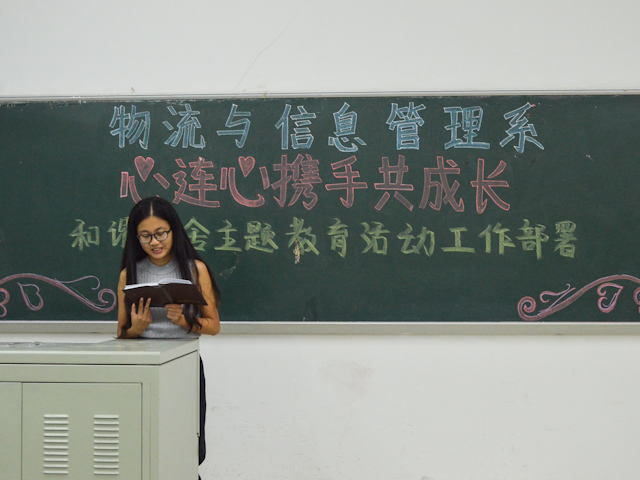 物流与信息管理系
心连心携手共成长
和 舍主题教育活动工作部署